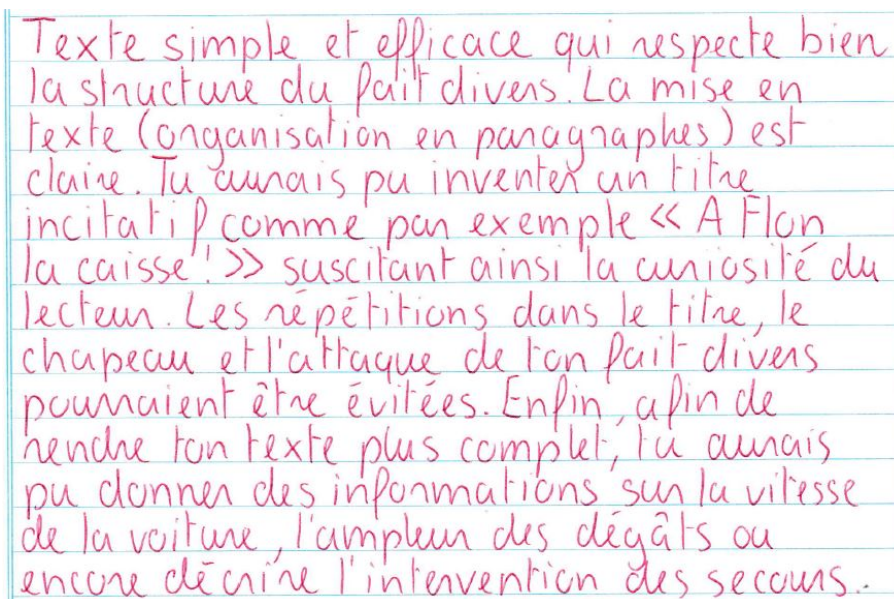 Texte simple et efficace qui respecte bien
la structure du fait divers. La mise en
texte (organisation en paragraphes) est
claire. Tu aurais pu inventer un titre
incitatif comme par exemple « A Flon
la caisse ! » suscitant ainsi la curiosité du
lecteur. Les répétitions dans le titre, le
chapeau et l'attaque de ton fait divers
pourraient être évitées. Enfin, afin de
rendre ton texte plus complet, tu aurais
pu donner des informations sur la vitesse
de la voiture, l'ampleur des dégâts ou
encore décrire l'intervention des secours.